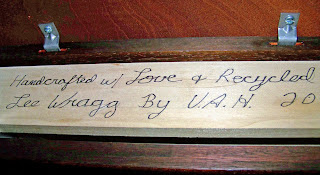 Handcrafted w/ Love & Recycled
Lee Wragg By V.A.H. 20